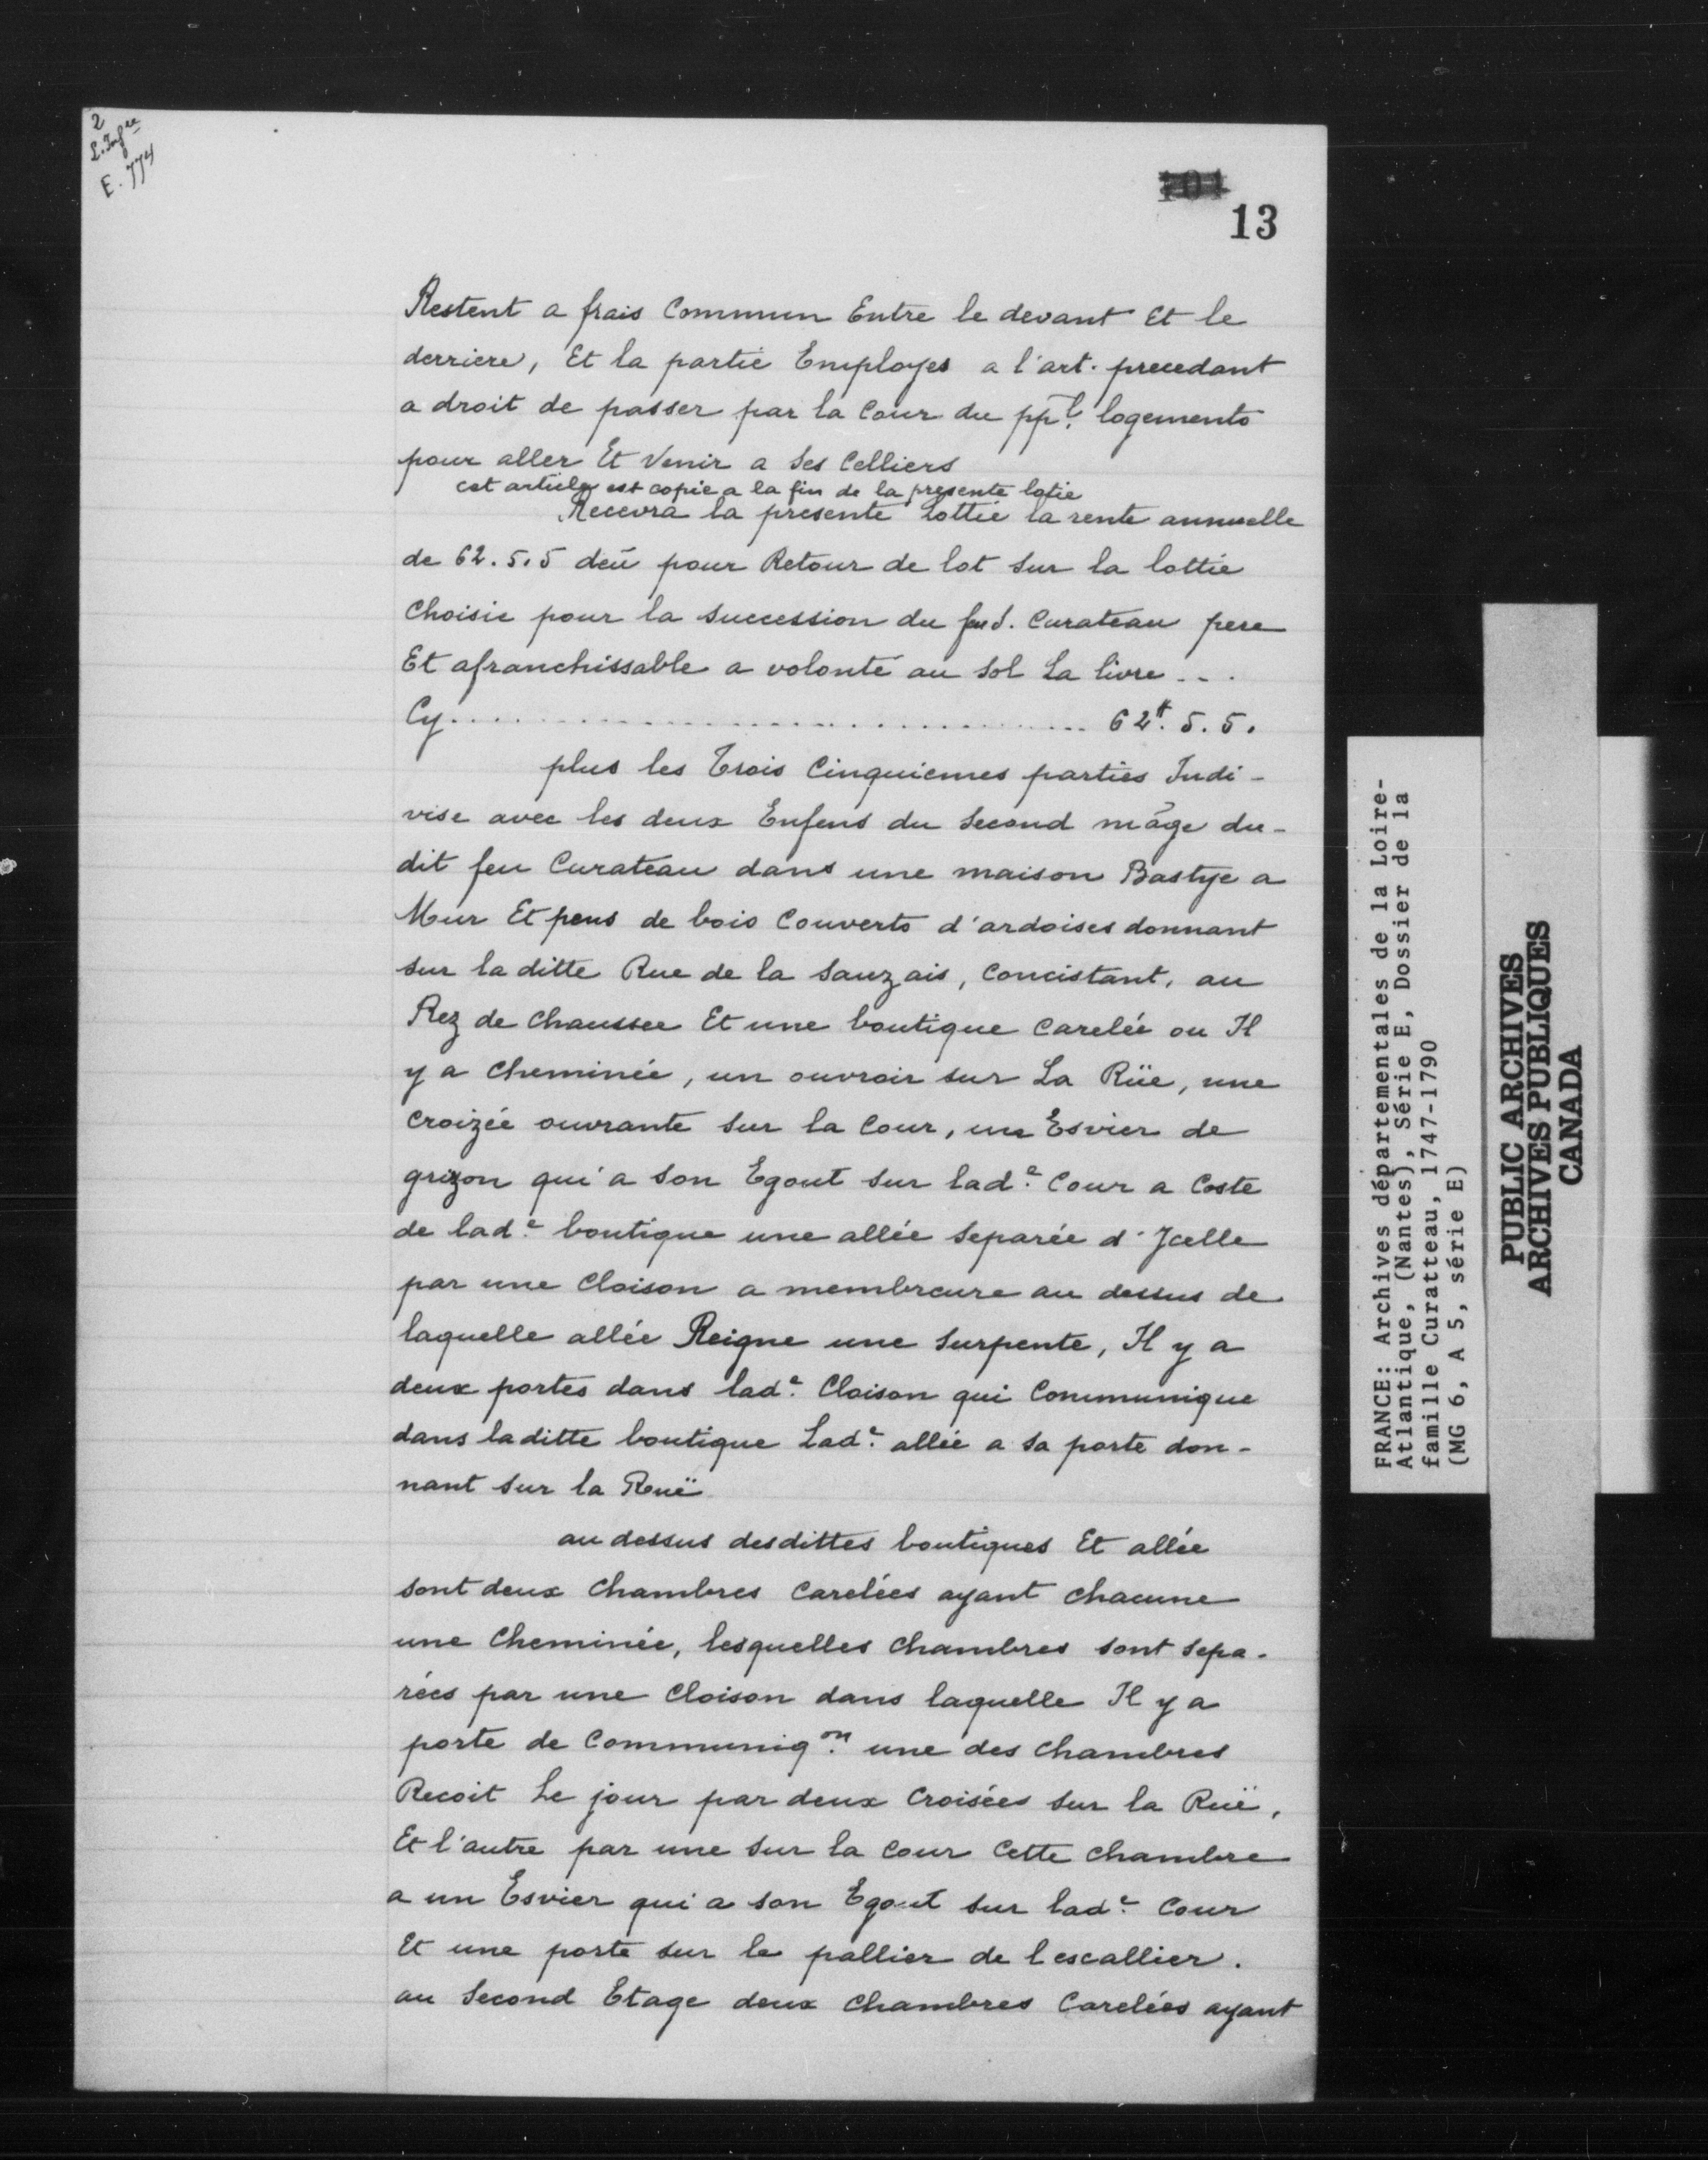 2
L. Infre
E. 774
13
Restent a frais Commun Entre le devant Et le
derriere, Et la partie Employes a l'art. precedant
a droit de passer par la Cour du ppl. logements
pour aller Et Venir a Ses Celliers
cet article est copie a la fin de la presente lotie
Recevra la presente Lottie la rente annuelle
de 62.5.5 deü pour Retour de lot sur la lottie
Choisie pour la succession du fud. Curateau pere
Et afranchissable a volonté au Sol La livre...
Cy.................................... 62#. 5. 5.
plus les Trois Cinquiemes parties Indi-
vise avec les deux Enfens du Second mãge du-
dit feu Curateau dans une maison Bastye a
Mur Et pens de bois Couverts d'ardoises donnant
sur la ditte Rue de la Sauzais, Concistant, au
Rez de chaussee Et une boutique Carelée ou Il
y a Cheminée, un ouvroir sur La Rüe, une
croizée ouvrante sur la Cour, un Esvier de
grizon qui a son Egout sur lade. Cour a Coste
de lade. boutique une allée Separée d'Jcelle
par une Cloison a membreure au dessus de
laquelle allée Reigne une Surpente, Il y a
deux portes dans lade. Cloison qui Communique
dans laditte boutique Lade. allée a sa porte don-
nant sur la Rouë
au dessus desdittes boutiques Et allée
sont deux Chambres Carelées ayant Chacune
une Cheminée, lesquelles Chambres sont sepa-
rées par une Cloison dans laquelle Il y a
porte de Communiqon. une des Chambres
Recoit Le jour par deux Croisées sur la Ruë,
Et l'autre par une sur la Cour Cette Chambre
a un Esvier qui a son Egout sur lade. Cour
Et une porte sur le pallier de lescallier.
au Second Etage deux Chambres Carelées ayant
FRANCE: Archives départementales de la Loire-
Atlantique, (Nantes), Série E, Dossier de la
famille Curatteau, 1747-1790
(MG 6, A 5, série E)
PUBLIC ARCHIVES
ARCHIVES PUBLIQUES
CANADA